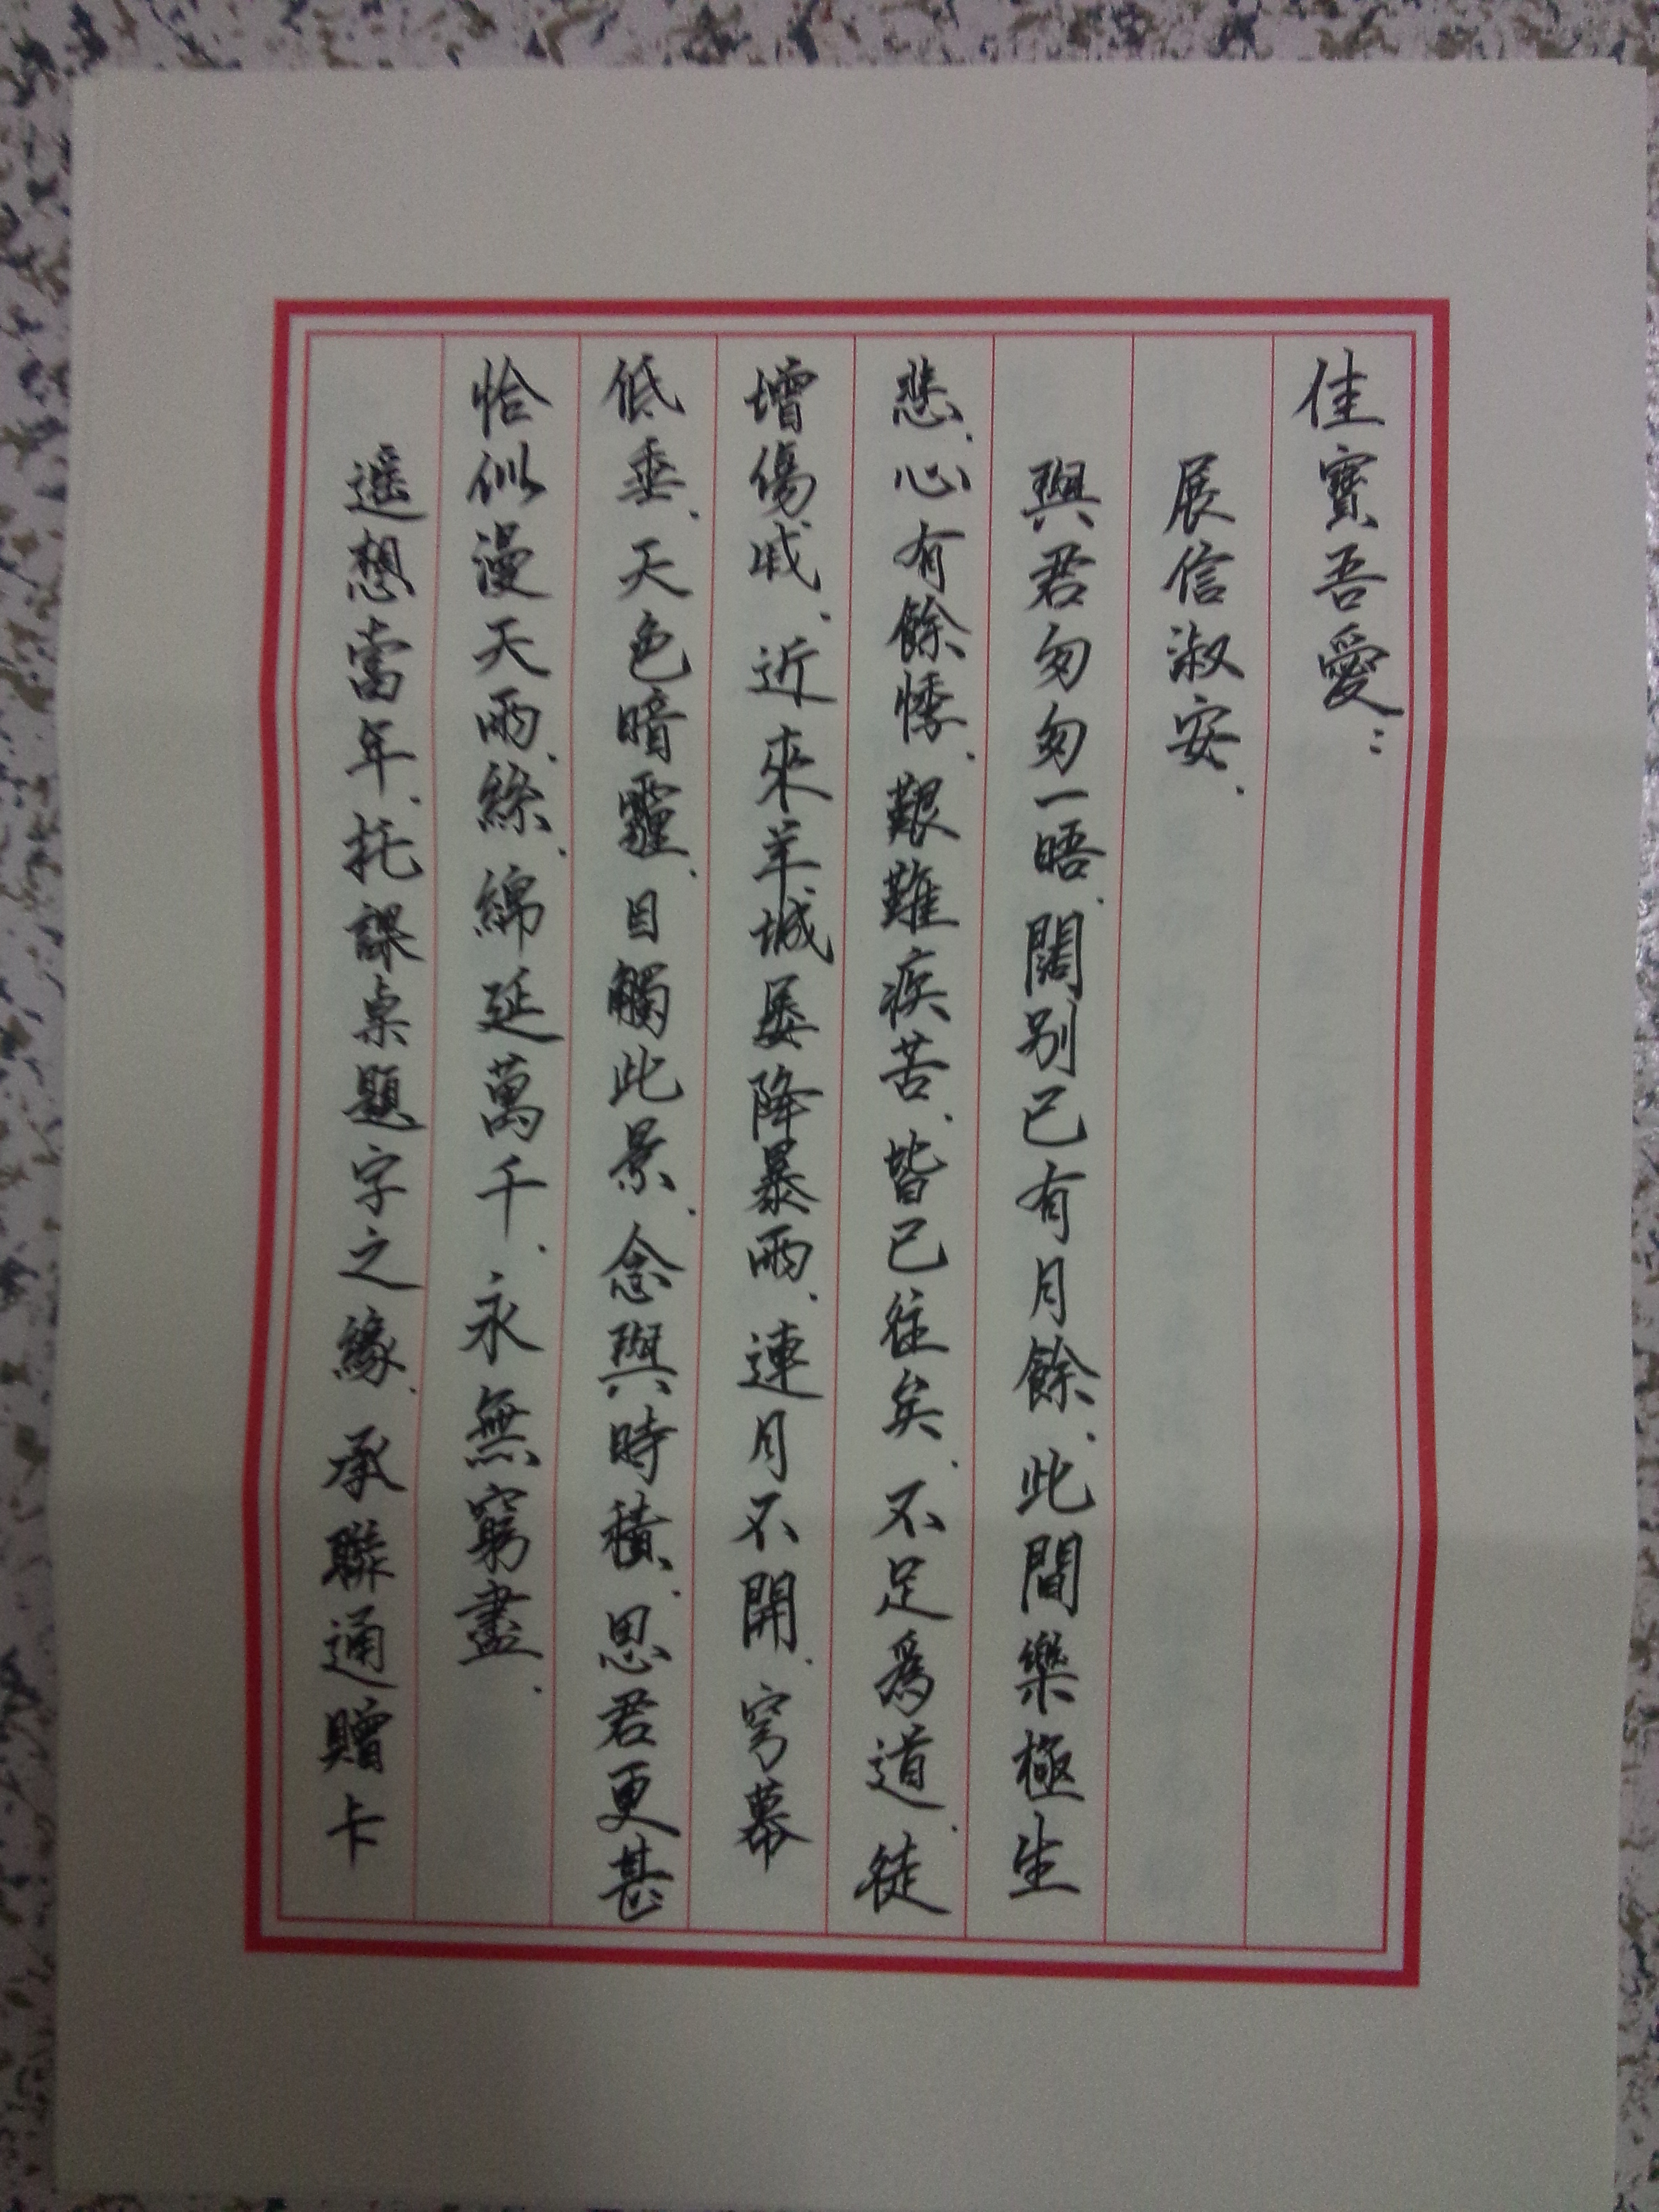 佳寶吾愛：
展信淑安．
與君匆匆一晤．闊别已有月餘．此間樂極生
悲．心有餘悸．艱難疾苦．皆已往矣．不足爲道．徒
增傷戚．近來羊城屡降暴雨．連月不開．穹幕
低垂．天色暗霾．目觸此景．念與時積．思君更甚
恰似漫天雨．絲．綿延萬千．永無窮盡．
遥想當年．托課桌題字之緣．承聯通贈卡